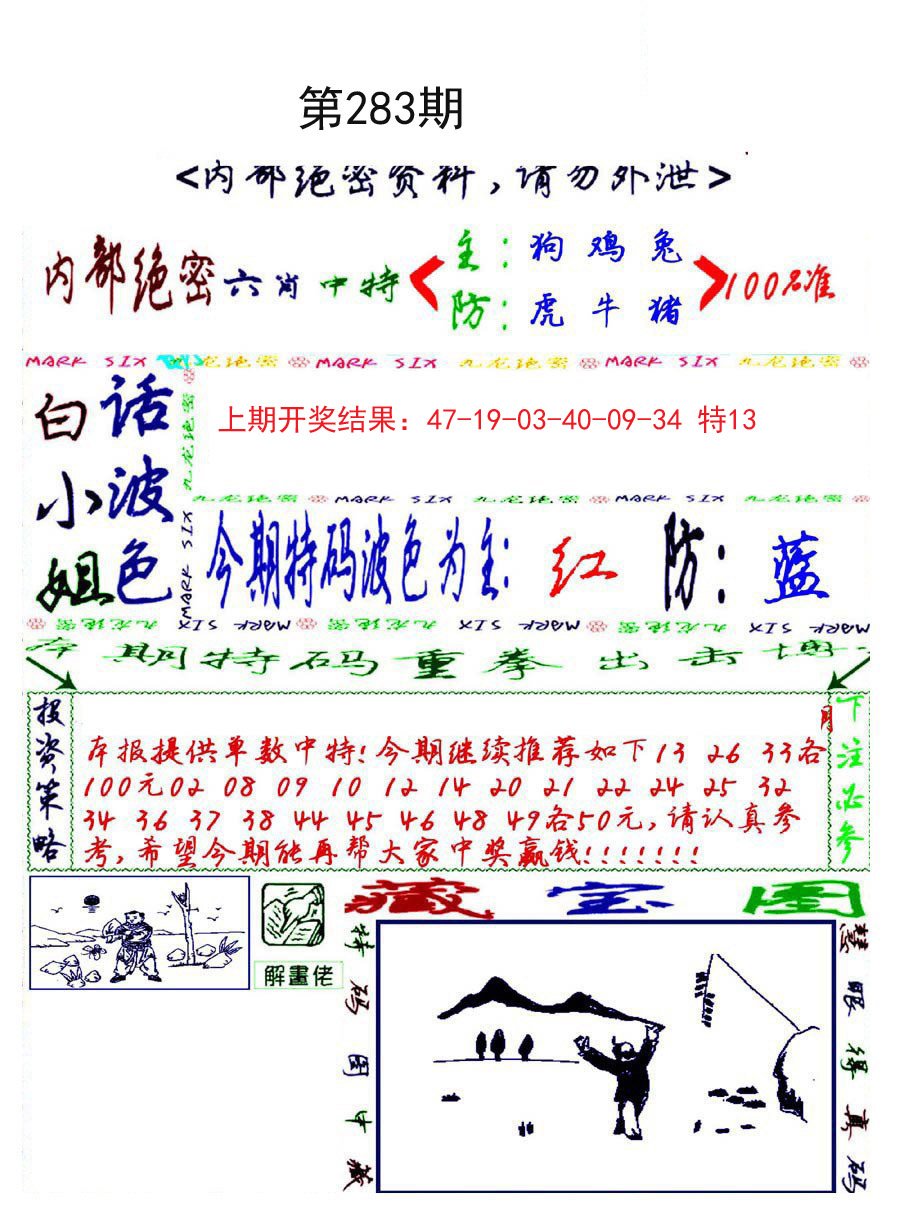 第283期
<内部绝密资料,请勿外泄>
内部绝密六肖中特
主:狗 鸡 兔
防:虎 牛 猪
100%准
MARK SIX 九龙绝密 MARK SIX 九龙绝密 MARK SIX 九龙绝密
白话
小波
姐色
九龙绝密
MARK SIX
上期开奖结果：47-19-03-40-09-34 特13
九龙绝密 MARK SIX 九龙绝密 MARK SIX 九龙绝密
今期特码波色为主:红 防:蓝
九龙绝密 MARK SIX 九龙绝密 MARK SIX 九龙绝密 MARK SIX
本期特码重拳出击博
投资策略
本报提供单数中特!今期继续推荐如下13 26 33各
100元02 08 09 10 12 14 20 21 22 24 25 32
34 36 37 38 44 45 46 48 49各50元,请认真参
考,希望今期能再帮大家中奖赢钱!!!!!!!
下注必参
解畫佬
藏宝图
特码图中藏
慧眼得真码